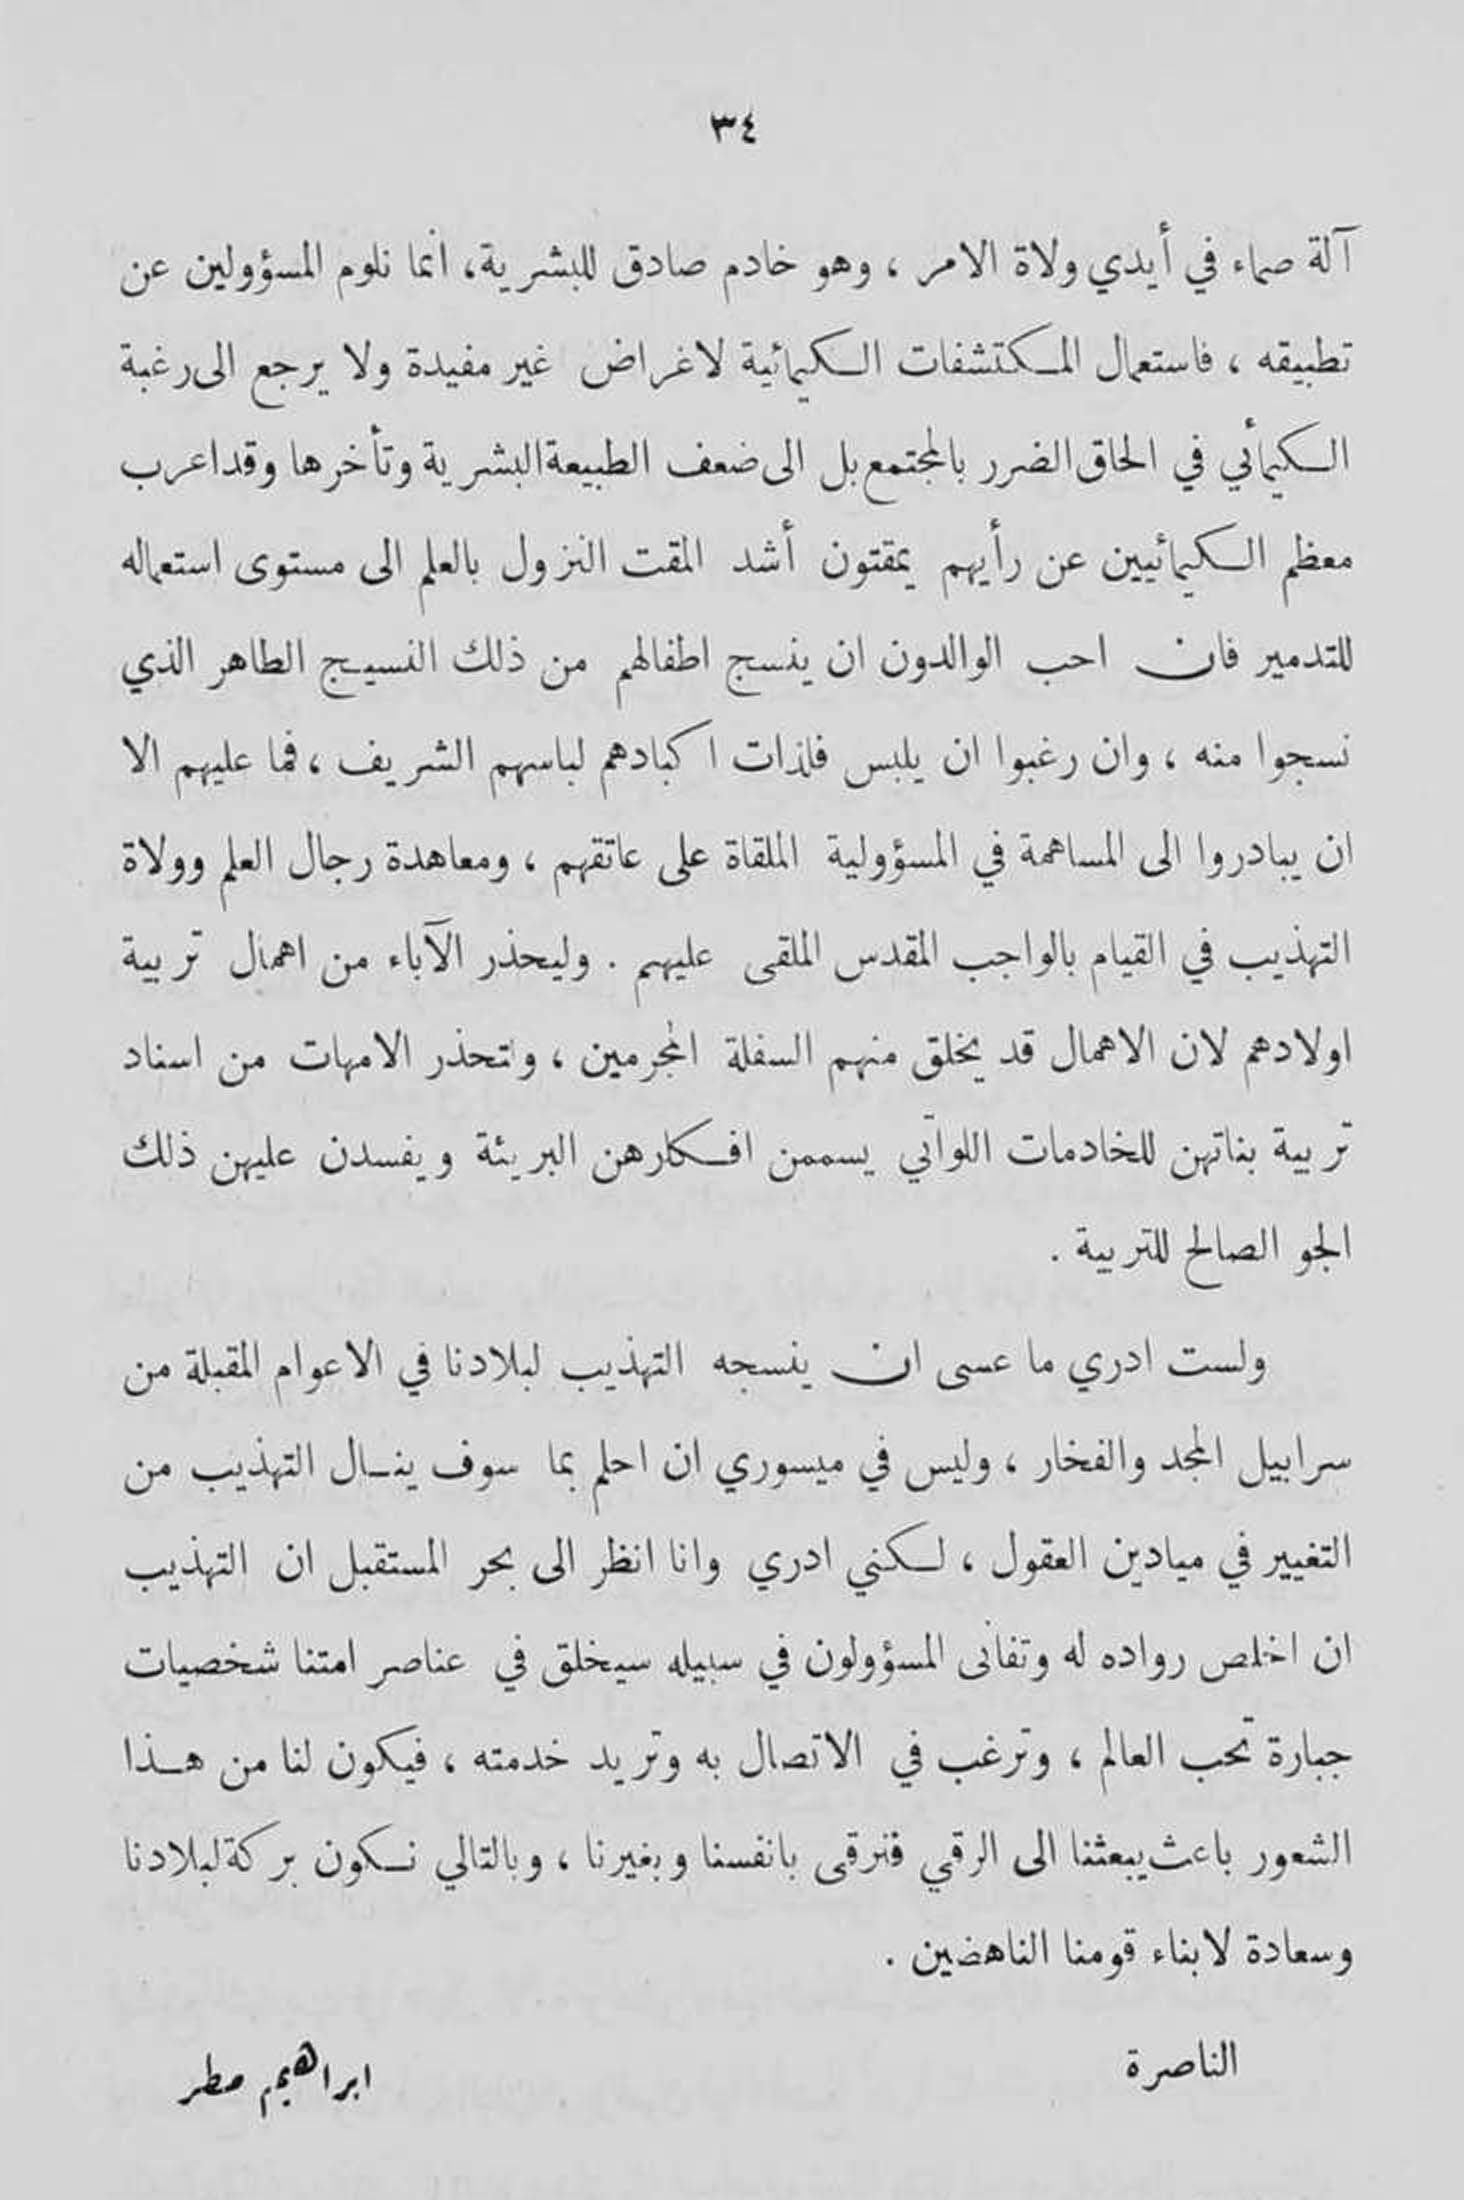 ٣٤
آلة صماء في أيدي ولاة الامر ، وهو خادم صادق للبشرية، انما نلوم المسؤولين عن
تطبيقه ، فاستعمال المكتشفات الكيمائية لاغراض غير مفيدة ولا يرجع الى رغبة
الكيمأئي في الحاق الضرر بالمجتمع بل الى ضعف الطبيعة البشرية وتأخرها وقد اعرب
معظم الكيمائيين عن رأيهم يمقتون أشد المقت النزول بالعلم الى مستوى استعماله
للتدمير فان احب الوالدون ان ينسج اطفالهم من ذلك النسيج الطاهر الذي
نسجوا منه ، وان رغبوا ان يلبس فلذات اكبادهم لباسهم الشريف ، فما عليهم الا
ان يبادروا الى المساهمة في المسؤولية الملقاة على عاتقهم ، ومعاهدة رجال العلم وولاة
التهذيب في القيام بالواجب المقدس الملقى عليهم . وليحذر الآباء من اهمال تربية
اولادهم لان الاهمال قد يخلق منهم السفلة المجرمين ، ولتحذر الامهات من اسناد
تربية بناتهن للخادمات اللواتي يسممن افكارهن البريئة ويفسدن عليهن ذلك
الجو الصالح للتربية .
ولست ادري ما عسى ان ينسجه التهذيب لبلادنا في الاعوام المقبلة من
سرابيل المجد والفخار ، وليس في ميسوري ان احلم بما سوف ينال التهذيب من
التغيير في ميادين العقول ، لكنني ادري وانا انظر الى بحر المستقبل ان التهذيب
ان اخلص رواده له وتفانى المسؤولون في سبيله سيخلق في عناصر امتنا شخصيات
جبارة تحب العالم ، وترغب في الاتصال به وتريد خدمته ، فيكون لنا من هذا
الشعور باعث يبعثنا الى الرقي فنرقى بانفسنا وبغيرنا ، وبالتالي نكون بركة لبلادنا
وسعادة لابناء قومنا الناهضين .
الناصرة ابراهيم مطر